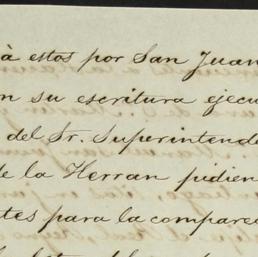 à estos por San Juan
n su escritura ejecu
del Sr. Superintende
de la Herran pidien
tes para la comparec